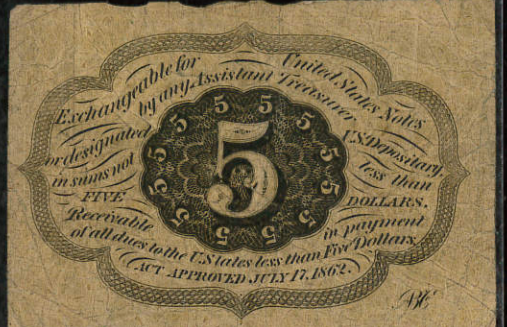 Exchangeable for United States Notes
by any Assistant Treasurer
or designated U.S. Depositary,
in sums not less than
FIVE DOLLARS.
Receivable in payment
of all dues to the U. States less than Five Dollars.
ACT APPROVED JULY 17, 1862.
5
5 5 5 5 5 5 5 5 5 5 5 5 5